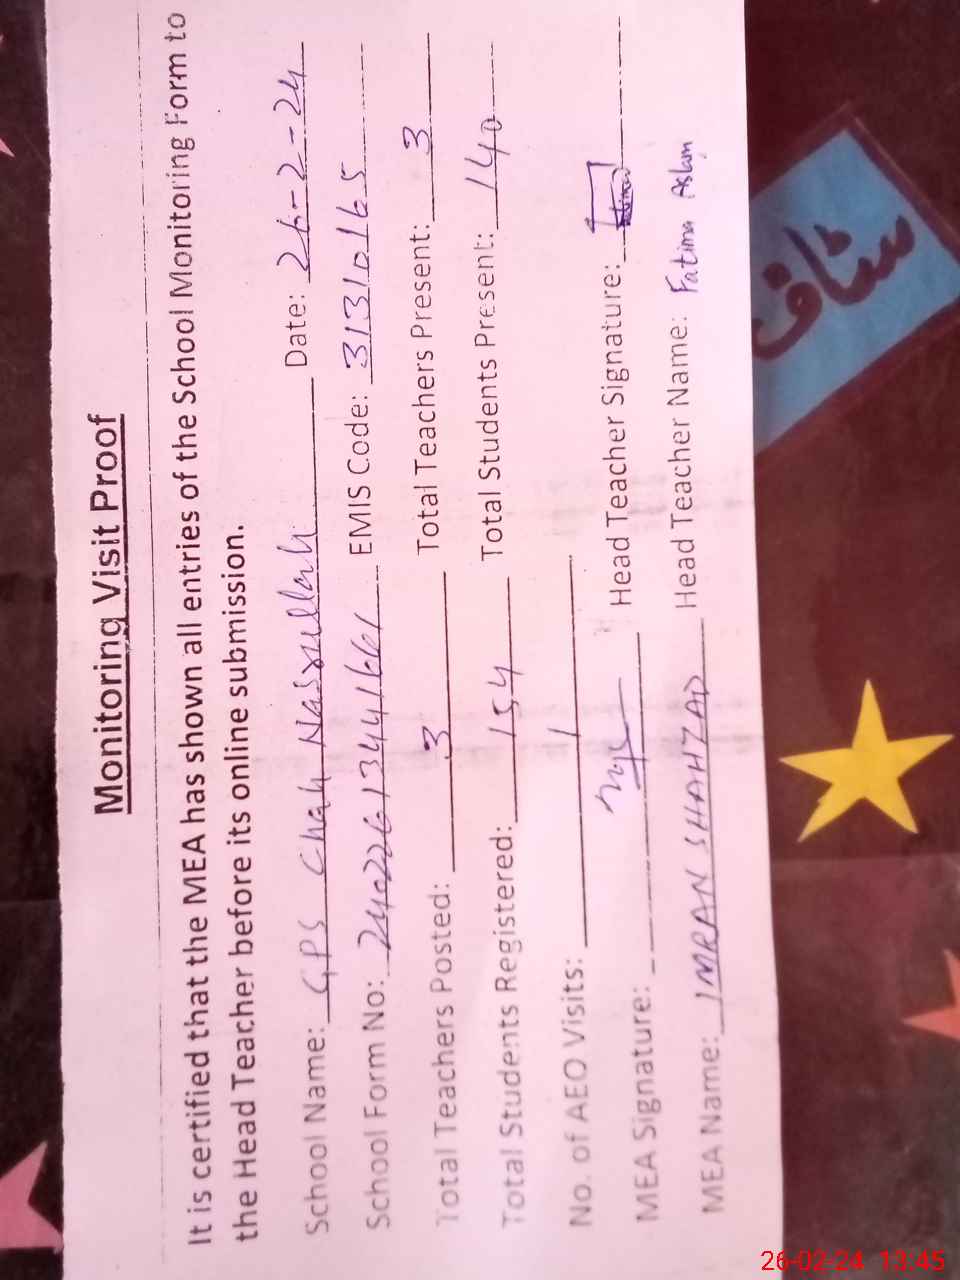 Monitoring Visit Proof
It is certified that the MEA has shown all entries of the School Monitoring Form to
the Head Teacher before its online submission.
School Name: GPS Chah Nasrullah Date: 26-2-24
School Form No: EMIS Code: 31310165
Total Teachers Posted: 3 Total Teachers Present: 3
Total Students Registered: 154 Total Students Present: 140
No. of AEO Visits: 1
MEA Signature: Head Teacher Signature:
MEA Name: IMRAN SHAHZAD Head Teacher Name: Fatima Aslam
سٹاف
26-02-24 13:45